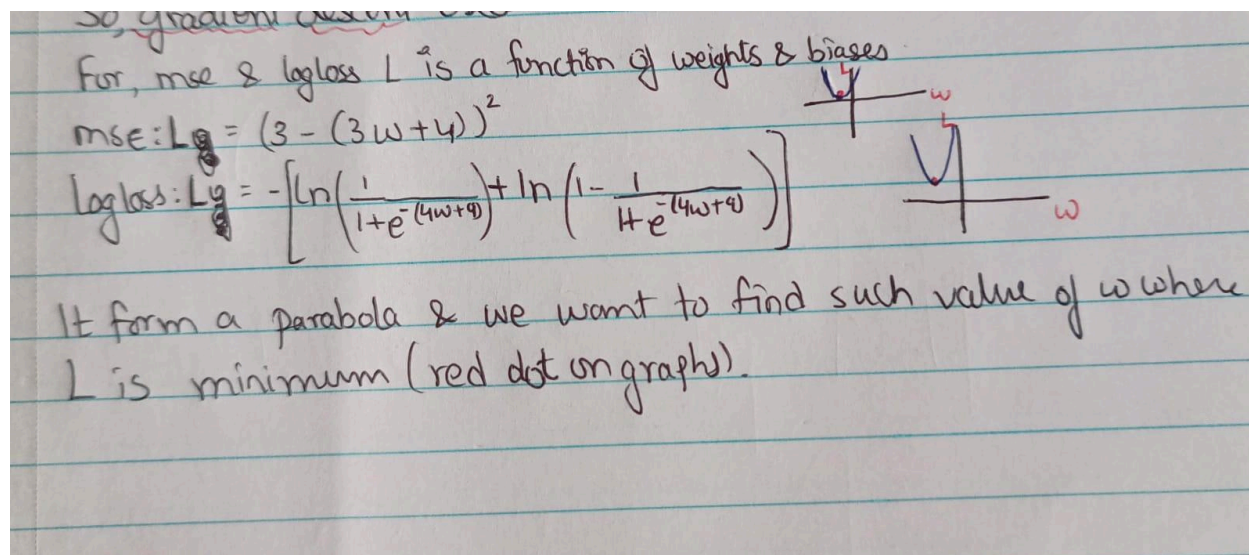 So, gradient descent
For, mse & logloss L is a function of weights & biases
L
w
mse: L = (3 - (3w+4))²
L
logloss: L = -[ln(1/(1+e^-(4w+9))) + ln(1 - 1/(1+e^-(4w+9)))]
w
It form a parabola & we want to find such value of w where
L is minimum (red dot on graphs).